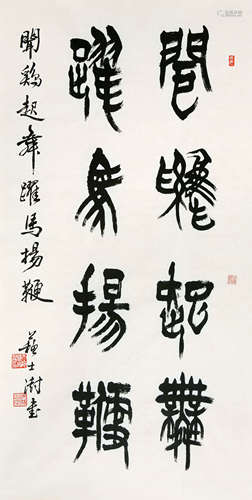 聞鷄起舞
躍馬揚鞭
聞鷄起舞躍馬揚鞭
蘇士澍書